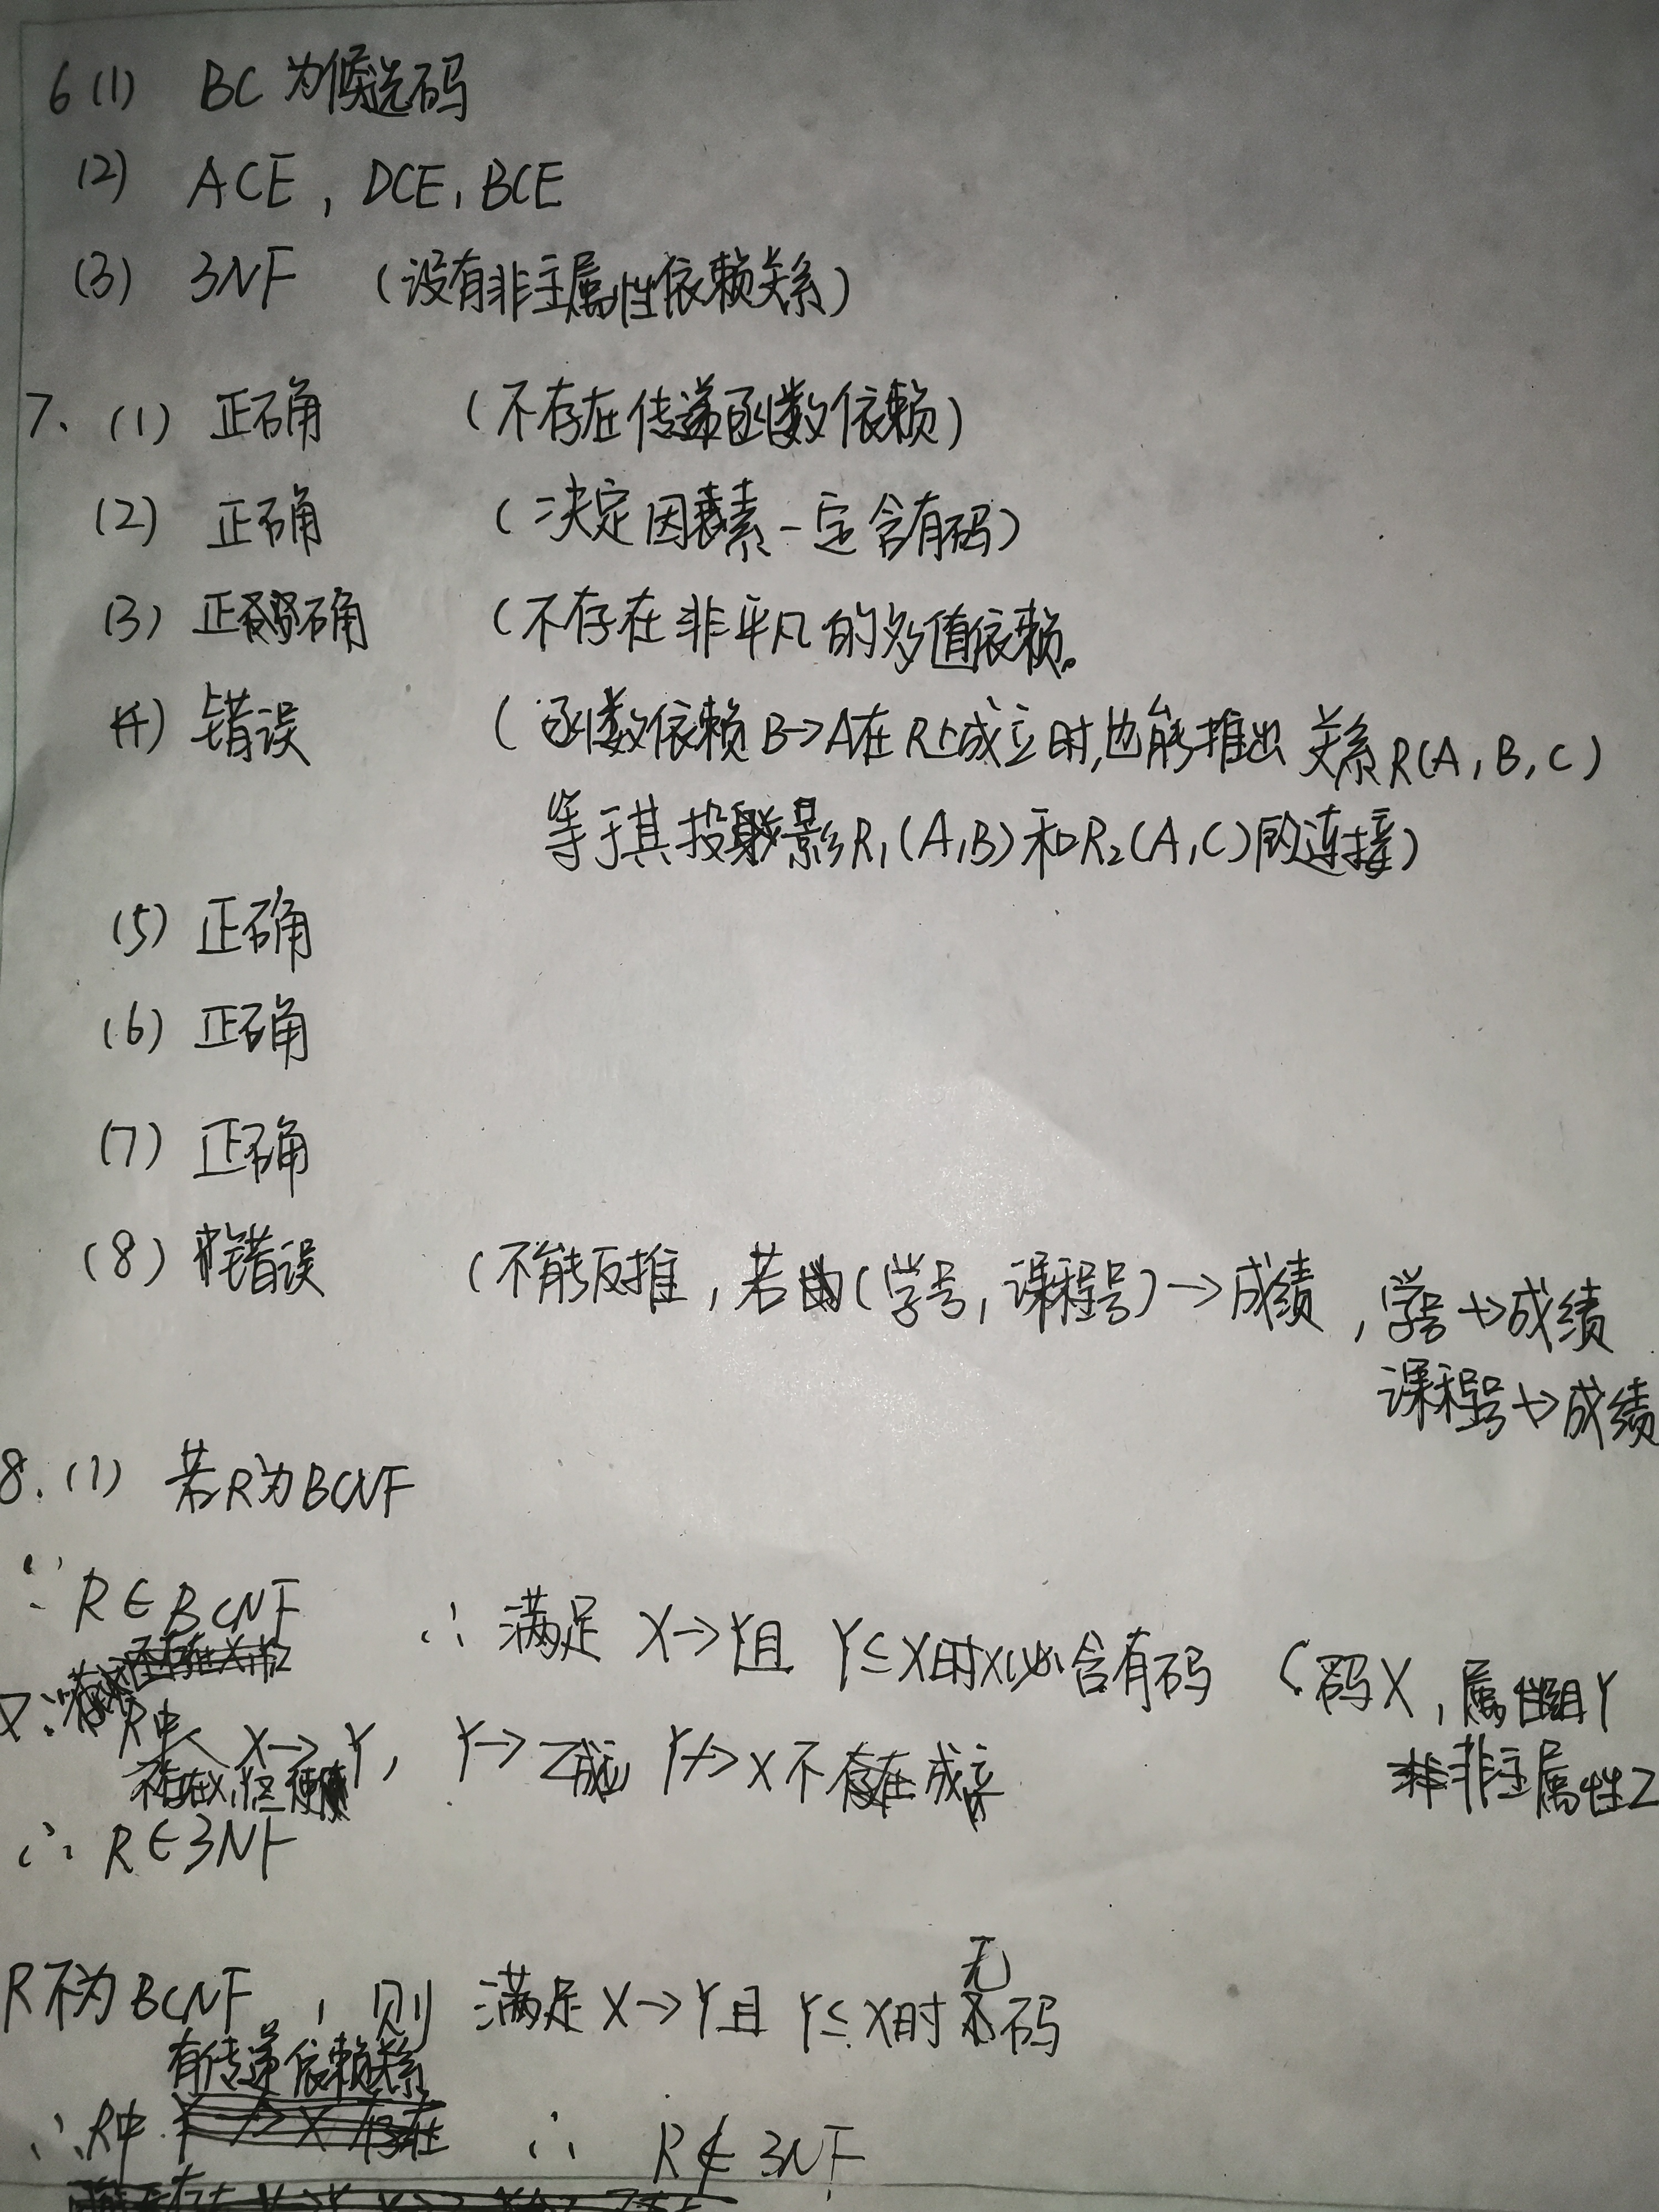 6 (1) BC 为候选码
(2) ACE , DCE, BCE
(3) 3NF (没有非主属性依赖关系)
7、(1) 正确 (不存在传递函数依赖)
(2) 正确 (决定因素一定含有码)
(3) 正确 (不存在非平凡的多值依赖。
(4) 错误 (函数依赖B→A在R上成立时,也能推出 关系R(A, B, C)
等于其投影R₁(A,B)和R₂(A,C)的连接)
(5) 正确
(6) 正确
(7) 正确
(8) 错误 (不能反推,若由(学号,课程号)→成绩 ,学号↛成绩
课程号↛成绩
8. (1) 若R为BCNF
∵ R∈BCNF ∴ 满足 X→Y且 Y⊆X时X必含有码 (码X,属性组Y
非主属性Z
又∵R中 X→Y, Y→Z成立 Y↛X不存在成立
∴ R∈3NF
R不为BCNF , 则 满足X→Y且 Y⊆X时无码
有传递依赖关系
∴R中 ∴ R∉3NF